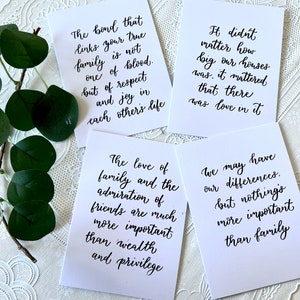 The bond that
links your true
family is not
one of blood,
but of respect
and joy in
each other's life
It didn't
matter how
big our houses
was, it mattered
that there
was love in it
The love of
family and the
admiration of
friends are much
more important
than wealth
and privilege
We may have
our differences,
but nothings
more important
than family